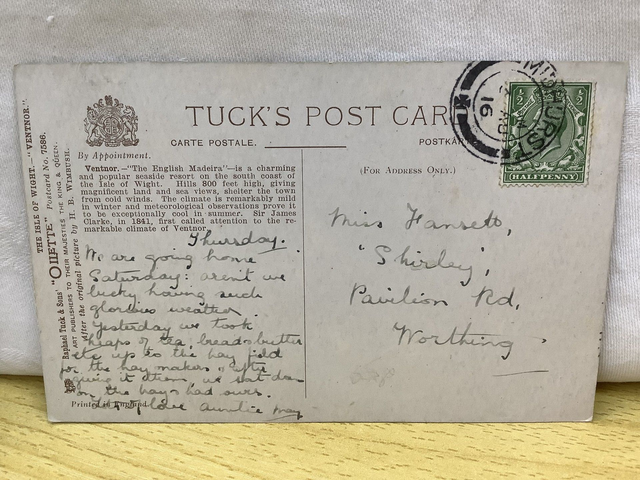 TUCK'S POST CARD
CARTE POSTALE.
POSTKAR
By Appointment.
(FOR ADDRESS ONLY.)
Ventnor.—"The English Madeira"—is a charming
and popular seaside resort on the south coast of
the Isle of Wight. Hills 800 feet high, giving
magnificent land and sea views, shelter the town
from cold winds. The climate is remarkably mild
in winter and meteorological observations prove it
to be exceptionally cool in summer. Sir James
Clarke, in 1841, first called attention to the re-
markable climate of Ventnor.
THE ISLE OF WIGHT.—"VENTNOR."
Raphael Tuck & Sons' "OILETTE" Postcard No. 7586.
ART PUBLISHERS TO THEIR MAJESTIES THE KING & QUEEN.
After the original picture by H. B. WIMBUSH.
Thursday.
We are going home
Saturday: aren't we
lucky having such
glorious weather.
Yesterday we took
heaps of tea, bread & butter
etc up to the hay field
for the hay makers & after
giving it them we sat down
on the hay & had ours.
love Auntie May
Printed in England.
Miss
"Shirley",
Pavilion Rd,
Worthing
½ ½
HALFPENNY
16